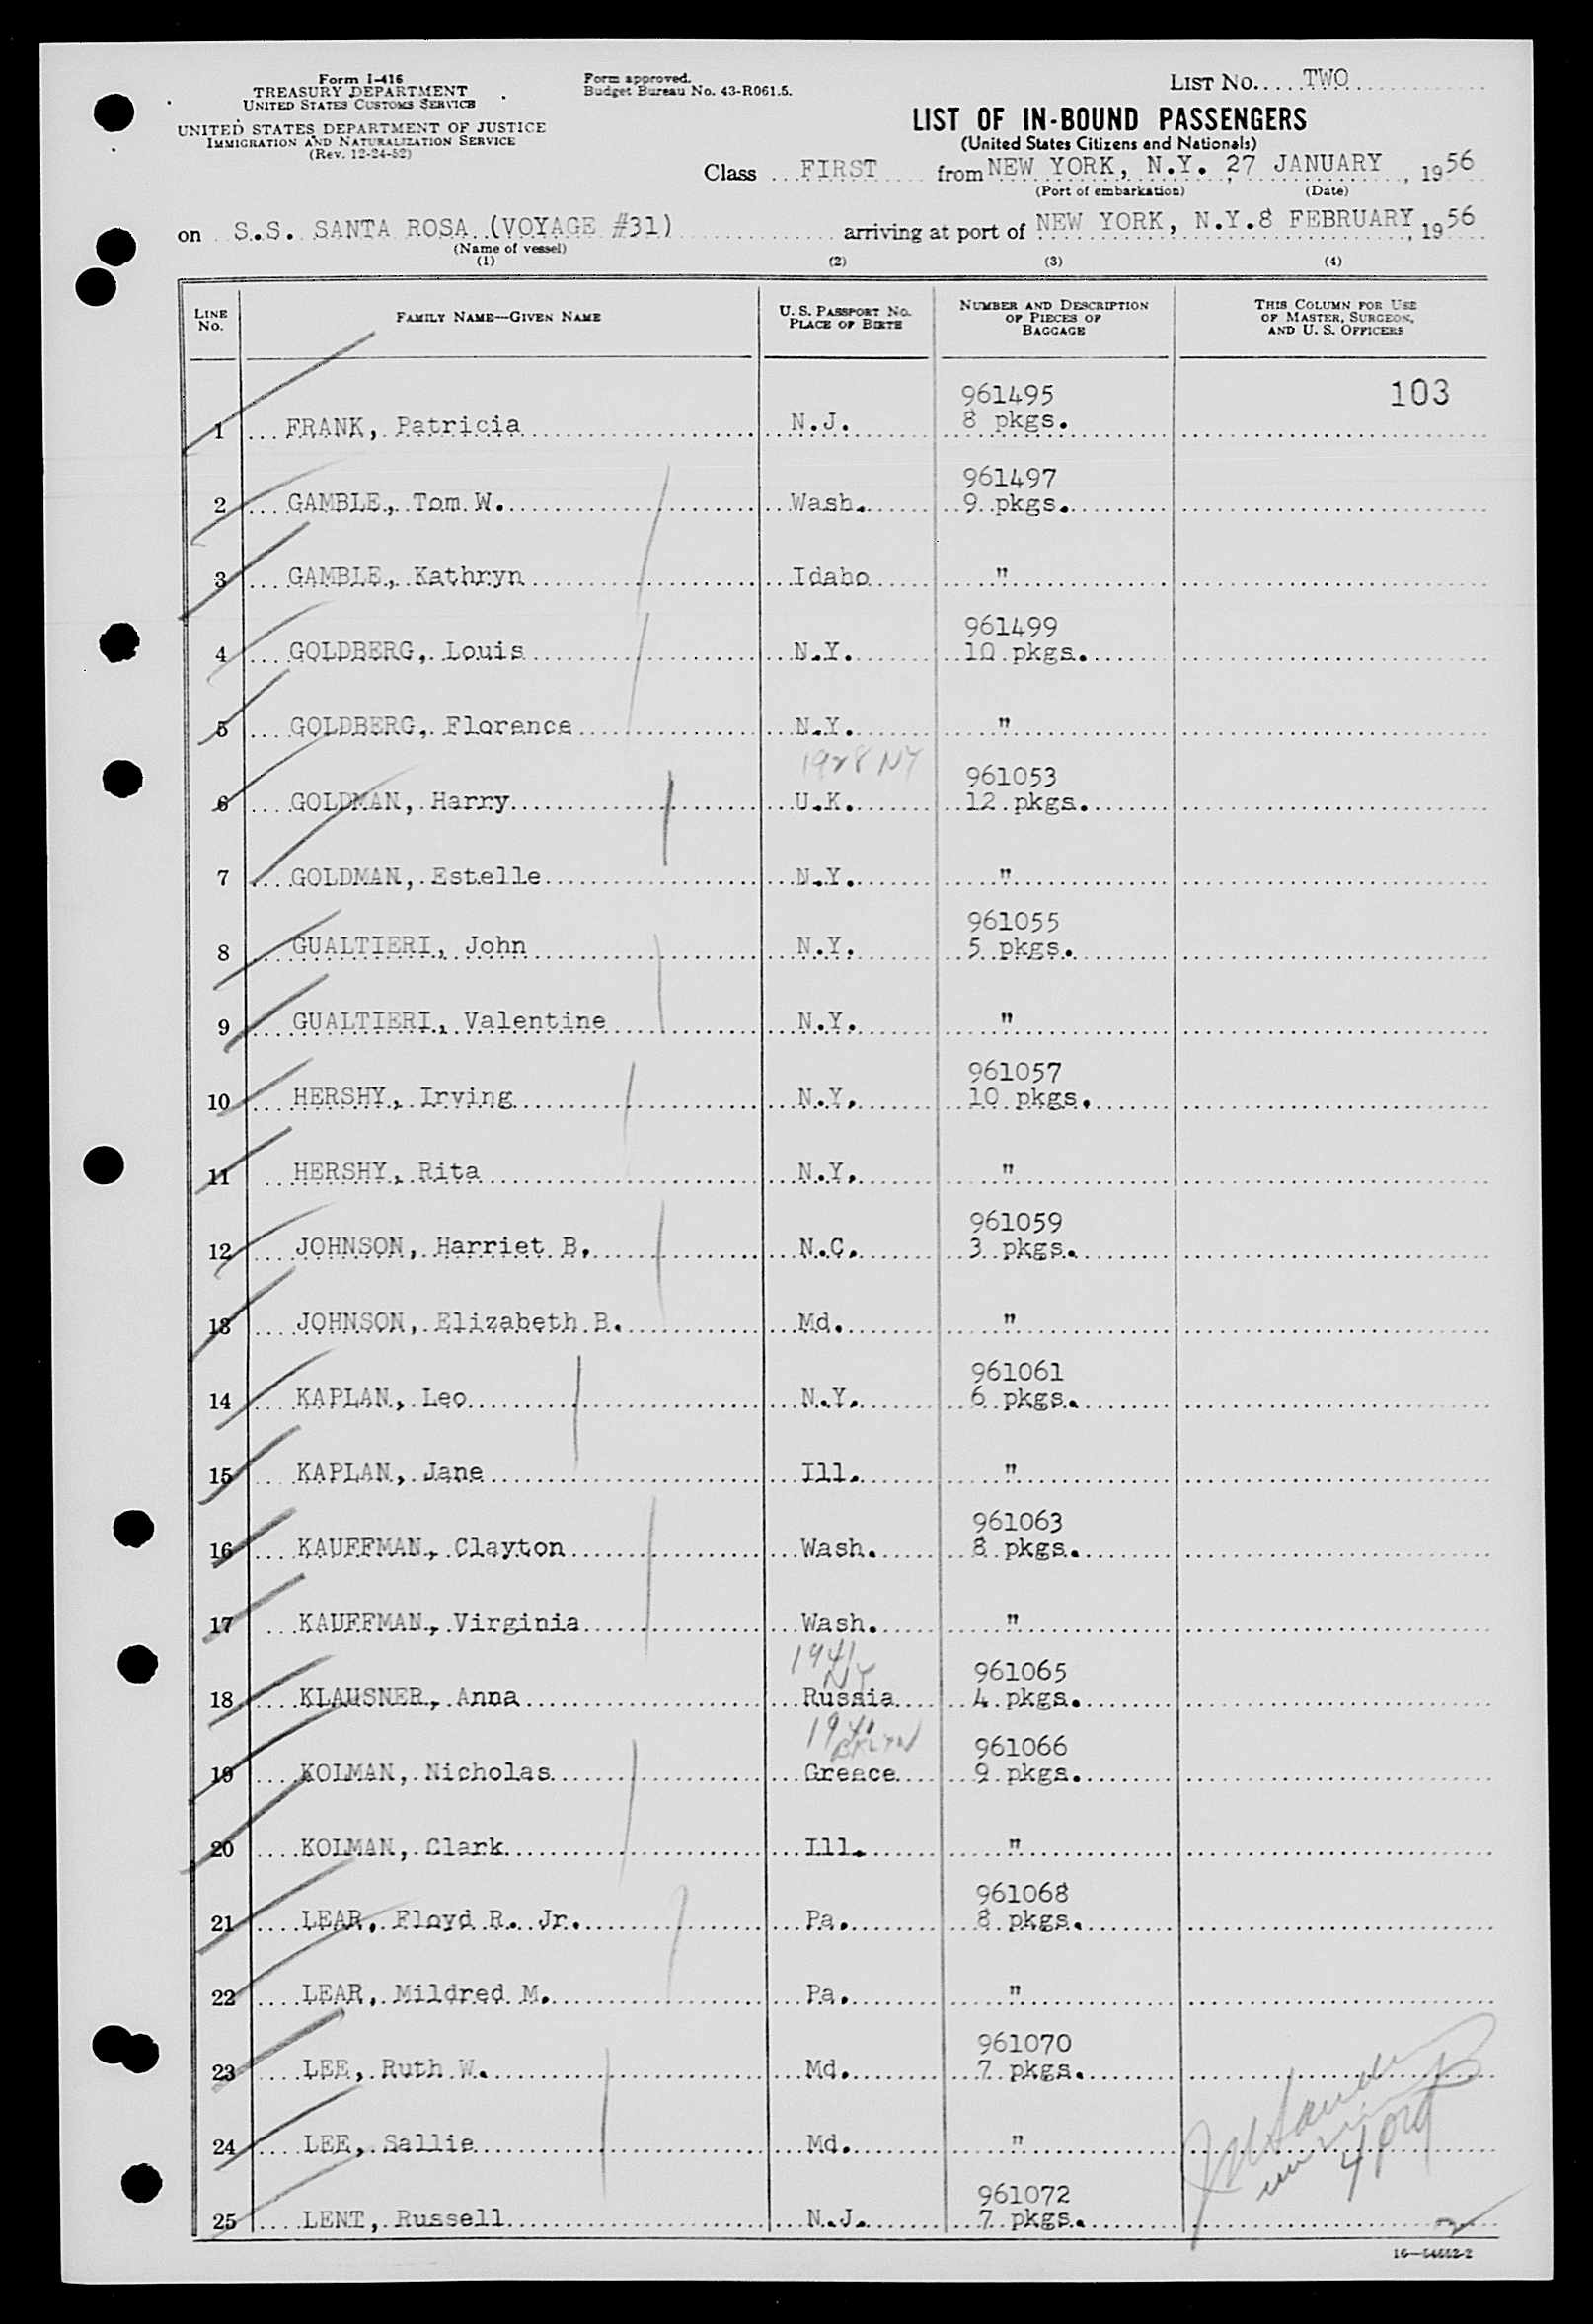 Form I-416
TREASURY DEPARTMENT
UNITED STATES CUSTOMS SERVICE
UNITED STATES DEPARTMENT OF JUSTICE
IMMIGRATION AND NATURALIZATION SERVICE
(Rev. 12-24-52)
Form approved.
Budget Bureau No. 43-R061.5.
LIST No. TWO
LIST OF IN-BOUND PASSENGERS
(United States Citizens and Nationals)
Class FIRST from NEW YORK, N.Y. 27 JANUARY, 1956
(Port of embarkation) (Date)
on S.S. SANTA ROSA (VOYAGE #31) arriving at port of NEW YORK, N.Y. 8 FEBRUARY, 1956
(Name of vessel)
(1) (2) (3) (4)
LINE No. FAMILY NAME—GIVEN NAME U. S. PASSPORT No. PLACE OF BIRTH NUMBER AND DESCRIPTION OF PIECES OF BAGGAGE THIS COLUMN FOR USE OF MASTER, SURGEON, AND U. S. OFFICERS
961495 103
1 FRANK, Patricia N.J. 8 pkgs.
961497
2 GAMBLE, Tom W. Wash. 9 pkgs.
3 GAMBLE, Kathryn Idaho "
961499
4 GOLDBERG, Louis N.Y. 10 pkgs.
5 GOLDBERG, Florence N.Y. "
1928 NY 961053
6 GOLDMAN, Harry U.K. 12 pkgs.
7 GOLDMAN, Estelle N.Y. "
961055
8 GUALTIERI, John N.Y. 5 pkgs.
9 GUALTIERI, Valentine N.Y. "
961057
10 HERSHY, Irving N.Y. 10 pkgs.
11 HERSHY, Rita N.Y. "
961059
12 JOHNSON, Harriet B. N.C. 3 pkgs.
13 JOHNSON, Elizabeth B. Md. "
961061
14 KAPLAN, Leo N.Y. 6 pkgs.
15 KAPLAN, Jane Ill. "
961063
16 KAUFFMAN, Clayton Wash. 8 pkgs.
17 KAUFFMAN, Virginia Wash. "
1941 NY 961065
18 KLAUSNER, Anna Russia 4 pkgs.
BKLYN 961066
19 KOLMAN, Nicholas Greece 9 pkgs.
20 KOLMAN, Clark Ill. "
961068
21 LEAR, Floyd R. Jr. Pa. 8 pkgs.
22 LEAR, Mildred M. Pa. "
961070
23 LEE, Ruth W. Md. 7 pkgs.
24 LEE, Sallie Md. "
961072
25 LENT, Russell N.J. 7 pkgs.
16—54652-2